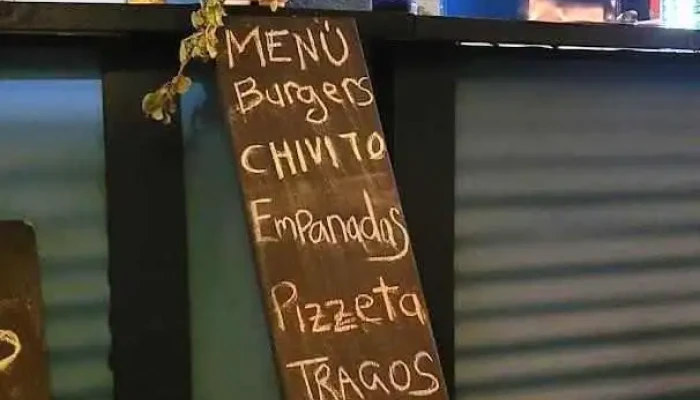 MENÜ
Burgers
CHIVITO
Empanadas
Pizzeta
TRAGOS